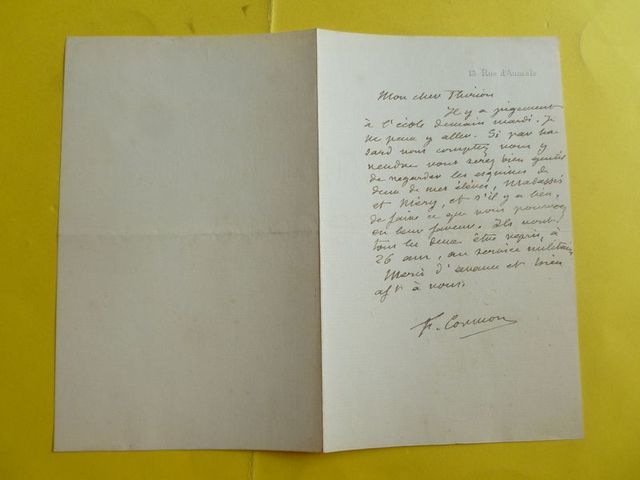 13 Rue d'Aumale
Mon cher Thirion
Il y a jugement
à l'école demain mardi. Je
ne peux y aller. Si par ha-
sard vous comptez vous y
rendre vous serez bien gentil
de regarder les esquisses de
deux de mes élèves, Malassis
et Méry, et s'il y a lieu,
de faire ce que vous pourrez
en leur faveur. Ils vont
tous les deux être repris, à
26 ans, au service militaire
Merci d'avance et bien
aff t à vous.
F. Cormon